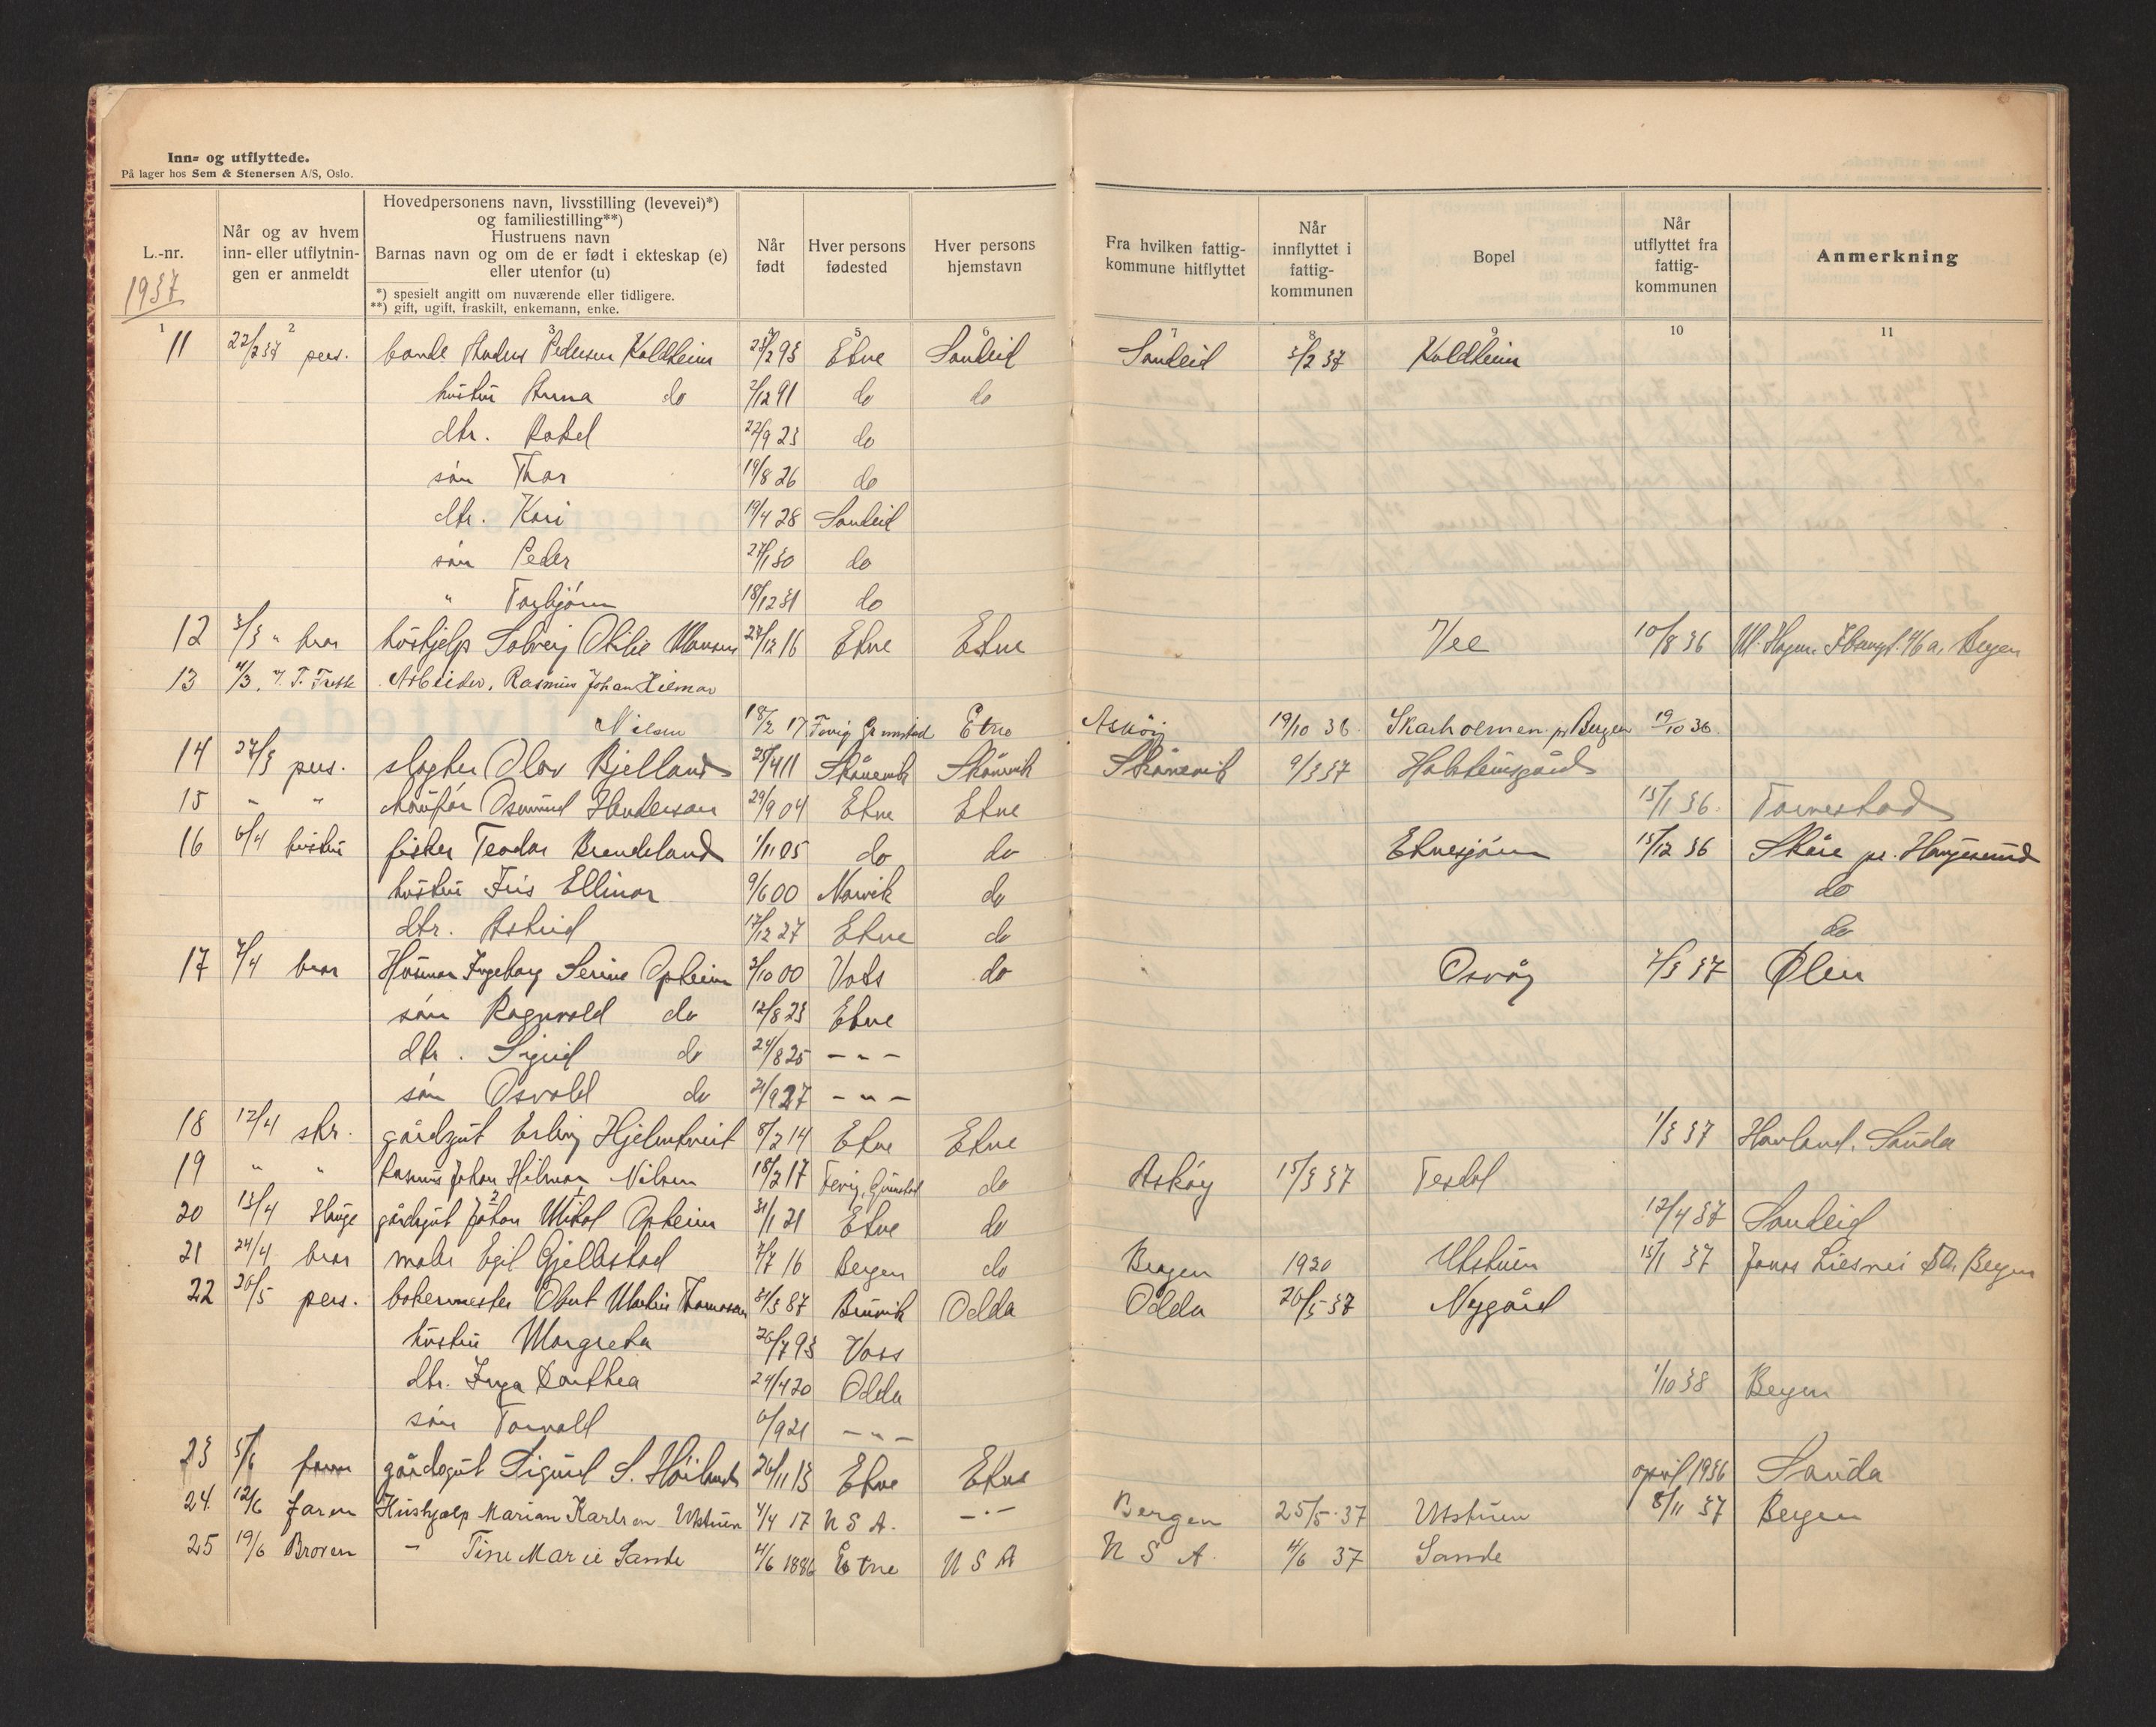 Inn- og utflyttede.
På lager hos Sem & Stenersen A/S, Oslo.
L.-nr.
1937
Når og av hvem
inn- eller utflytnin-
gen er anmeldt
Hovedpersonens navn, livsstilling (levevei)*)
og familiestilling**)
Hustruens navn
Barnas navn og om de er født i ekteskap (e)
eller utenfor (u)
*) spesielt angitt om nuværende eller tidligere.
**) gift, ugift, fraskilt, enkemann, enke.
Når
født
Hver persons
fødested
Hver persons
hjemstavn
Fra hvilken fattig-
kommune hitflyttet
Når
innflyttet i
fattig-
kommunen
Bopel
Når
utflyttet fra
fattig-
kommunen
Anmerkning
1 2 3 5 6 7 8 9 10 11
11 22/2 37 pers. bonde Anders Pedersen Koldheim 23/2 93 Etne Sandeid Sandeid 3/2 37 Koldheim
hustru Anna do 2/12 91 do do
dtr. Rakel 22/9 23 do
sön Thor 19/8 26 do
dtr. Kari 19/4 28 Sandeid
sön Peder 27/1 30 do
" Torbjörn 18/12 31 do
12 3/3 " bror hushjelp Solveig Otilie 27/12 16 Etne Etne Vee 10/8 36 Bergen
13 4/3 Arbeider, Rasmus Johan Hilmar
Nilsen 18/2 17 Fevig Grimstad Etne Asköy 19/10 36 Skarholmen pr Bergen 19/10 36
14 27/3 pers. slagter Olav Bjelland 25/4 11 Skånevik Skånevik Skånevik 9/3 37 Holsteinsgård
15 " " Osmund Henderson 29/9 04 Etne Etne 15/1 36 Tornestad
16 6/4 hustru fisker Teodor Brendeland 1/11 05 do do Etnesjöen 15/12 36 Skåre pr. Haugesund
hustru Iris Ellinor 9/6 00 Narvik do do
dtr. Astrid 17/12 27 Etne do do
17 7/4 bror Husmor Ingeborg Serine Opheim 3/10 00 Vats do Osvåg 7/3 37 Ølen
sön Ragnvald do 12/8 23 Etne
dtr. Sigrid do 24/8 25 - " -
sön Osvald do 21/9 27 - " -
18 12/4 skr. gårdsgut Erling Hjelmtveit 8/2 14 Etne Etne 1/3 37 Havland, Sauda
19 " " Rasmus Johan Hilmar Nilsen 18/2 17 Fevig, Grimstad do Asköy 15/3 37 Tesdal
20 13/4 Hauge gårdsgut Johan Mikal Opheim 31/1 21 Etne do 12/4 37 Sandeid
21 24/4 bror maler Egil Gjellestad 7/7 16 Bergen do Bergen 1920 Utstuen 15/1 37 Jonas Liesvei Bergen
22 20/5 pers. bakermester Martin Thomassen 31/3 87 Bruvik Odda Odda 20/5 37 Nygård
hustru Margreta 26/7 93 Voss
dtr. Inga Dorthea 24/4 20 Odda 1/10 38 Bergen
sön Torvald 6/9 21 - " -
23 5/6 faren gårdsgut Sigurd S. Höiland 26/11 13 Etne Etne april 1936 Sauda
24. 12/6 faren Hushjælp Marian Karlsen Utstuen 4/4 17 U S A. - " - Bergen 25/5 37 Utstuen 8/11 37 Bergen
25 19/6 Broren - " Tine Marie Sande 4/6 1886 Etne U S A U S A. 4/6 37 Sande